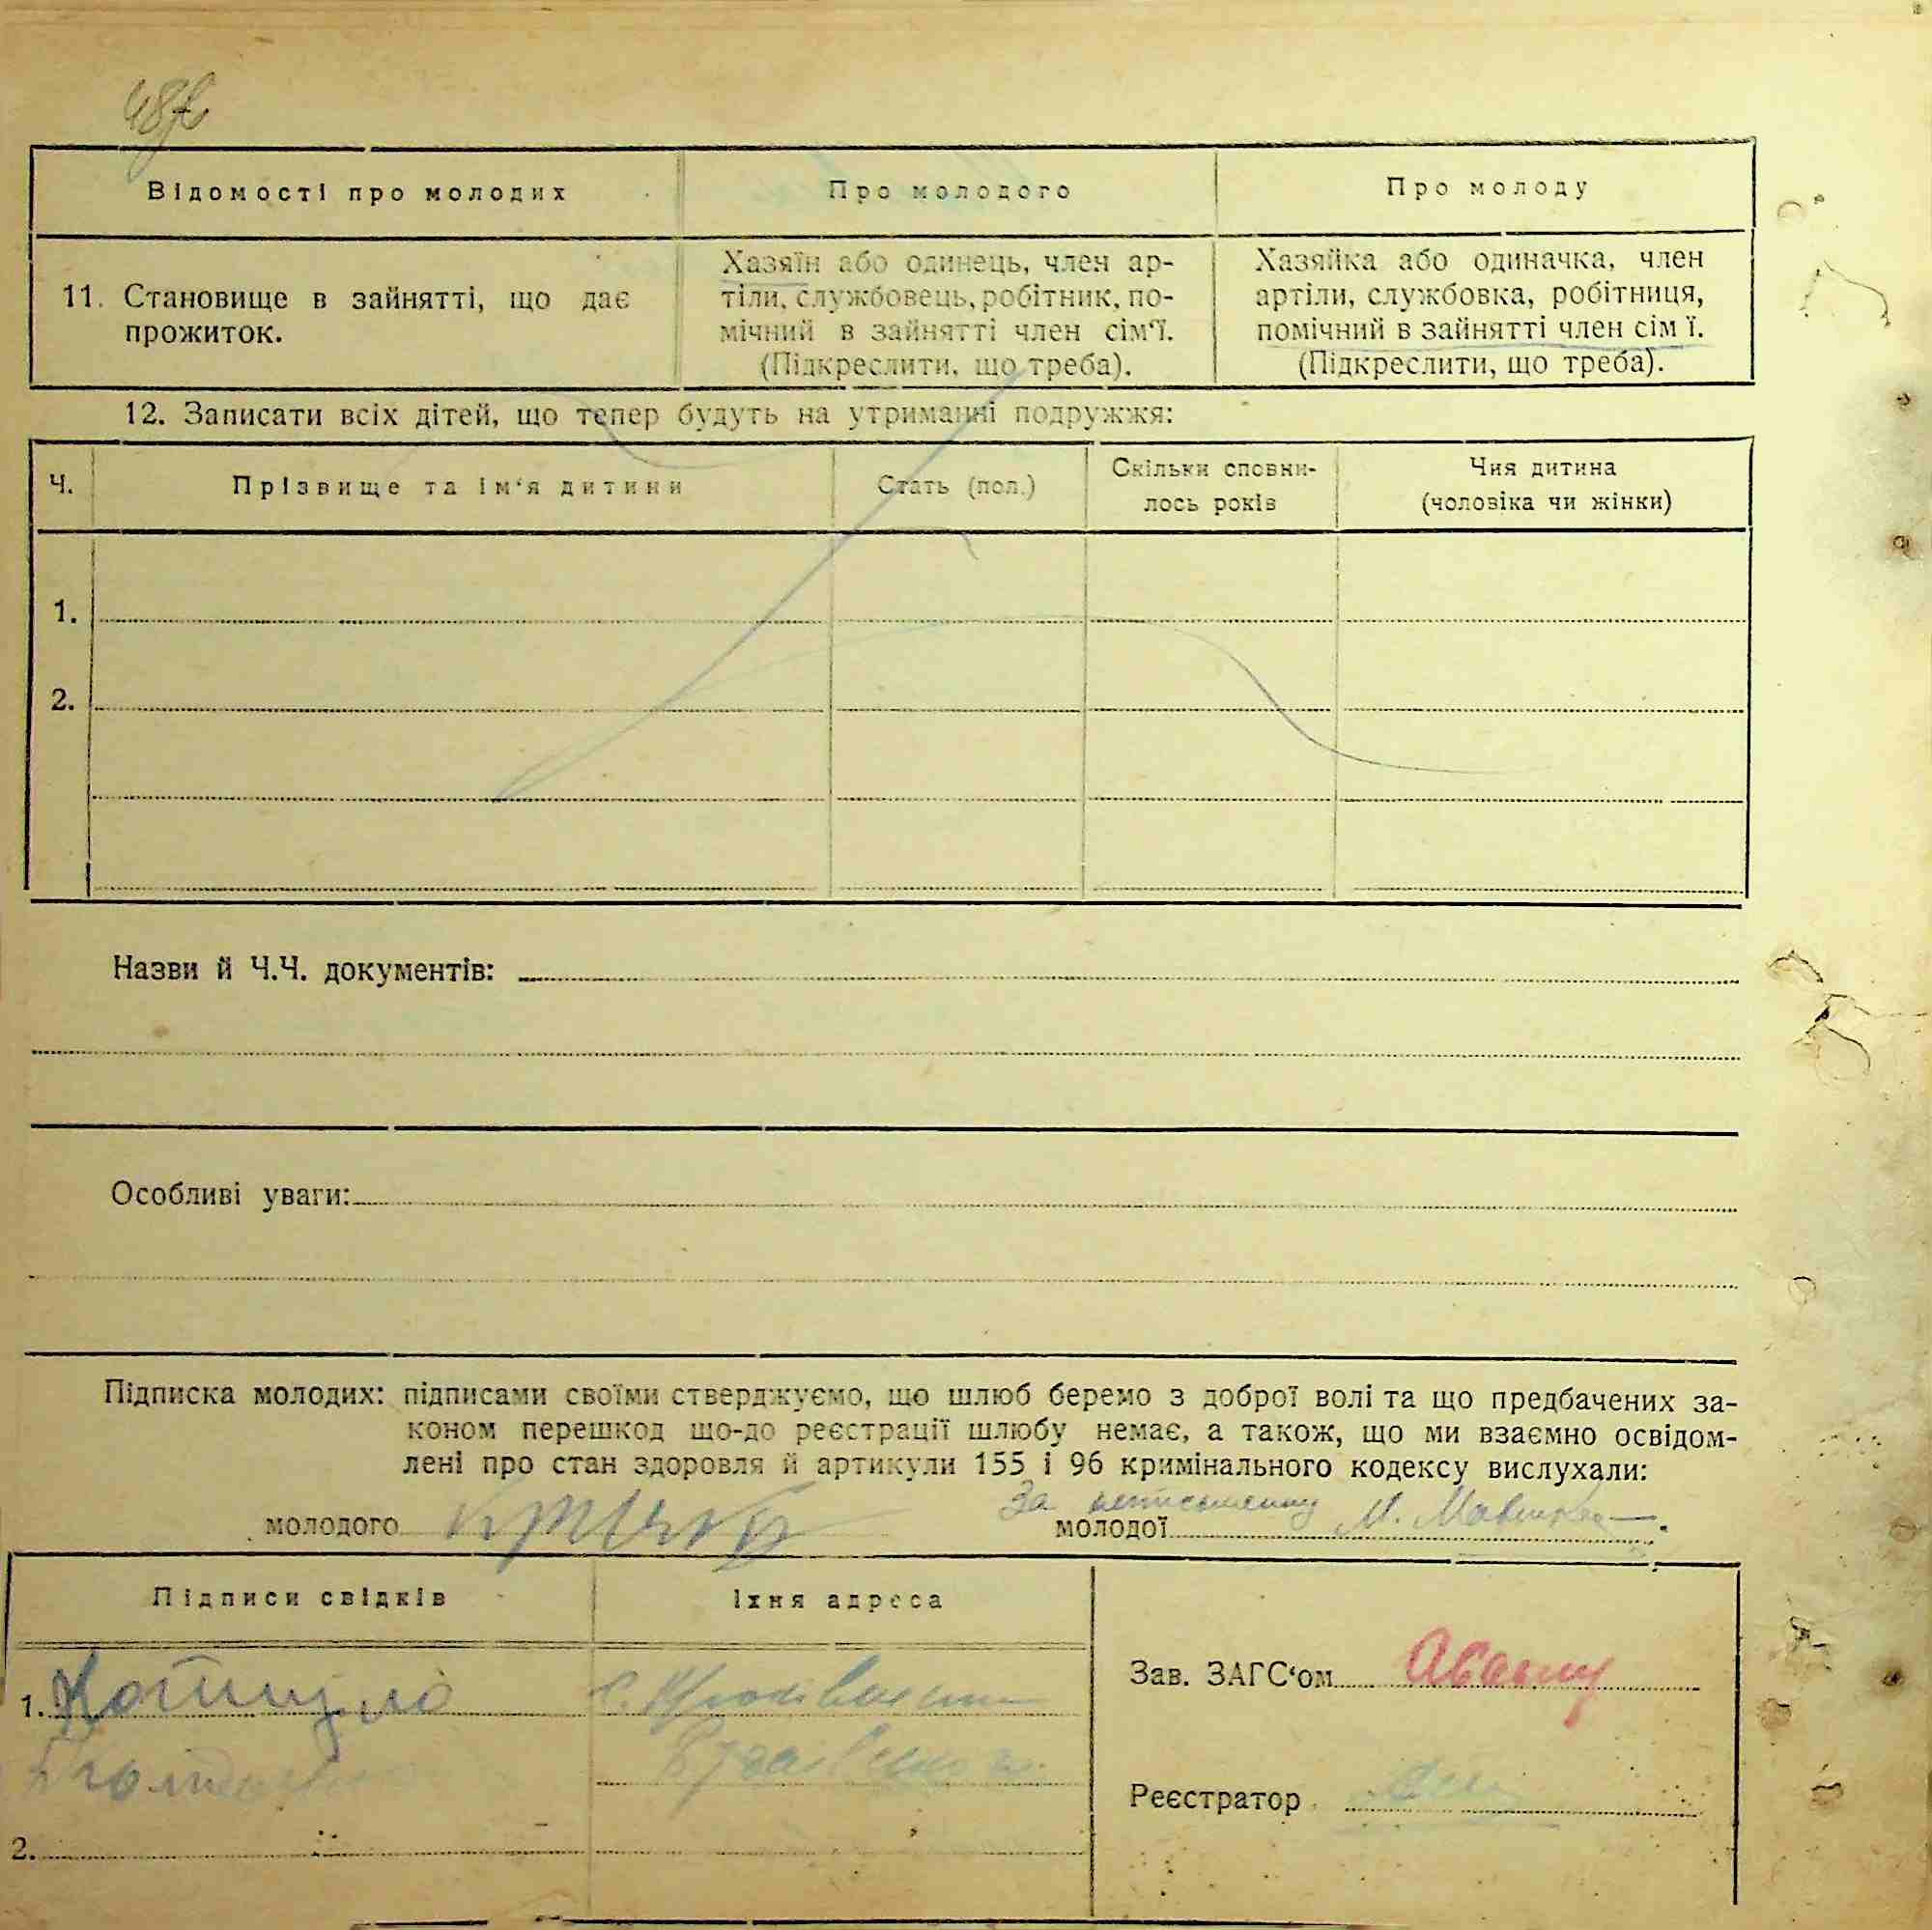 Відомості про молодих
Про молодого
Про молоду
11. Становище в зайнятті, що дає
прожиток.
Хазяїн або одинець, член ар-
тіли, службовець, робітник, по-
мічний в зайнятті член сім'ї.
(Підкреслити, що треба).
Хазяйка або одиначка, член
артіли, службовка, робітниця,
помічний в зайнятті член сім ї.
(Підкреслити, що треба).
12. Записати всіх дітей, що тепер будуть на утриманні подружжя:
Ч.
Прізвище та ім'я дитини
Стать (пол.)
Скільки сповни-
лось років
Чия дитина
(чоловіка чи жінки)
1.
2.
Назви й Ч.Ч. документів:
Особливі уваги:
Підписка молодих: підписами своїми стверджуємо, що шлюб беремо з доброї волі та що предбачених за-
коном перешкод що-до реєстрації шлюбу немає, а також, що ми взаємно освідом-
лені про стан здоровля й артикули 155 і 96 кримінального кодексу вислухали:
молодого
За неписьменну М.
молодої
Підписи свідків
Їхня адреса
1.
с.
2.
Зав. ЗАГС'ом
Реєстратор